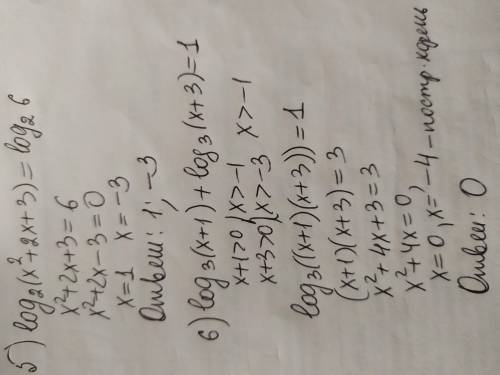 5) log₂(x²+2x+3) = log₂6
x²+2x+3=6
x²+2x-3=0
x=1 x=-3
Ответ: 1; -3
6) log₃(x+1)+log₃(x+3)=1
x+1>0 { x>-1
x+3>0 { x>-3 x>-1
log₃((x+1)(x+3))=1
(x+1)(x+3)=3
x²+4x+3=3
x²+4x=0,
x=0, x=-4 - постр. корень
Ответ: 0